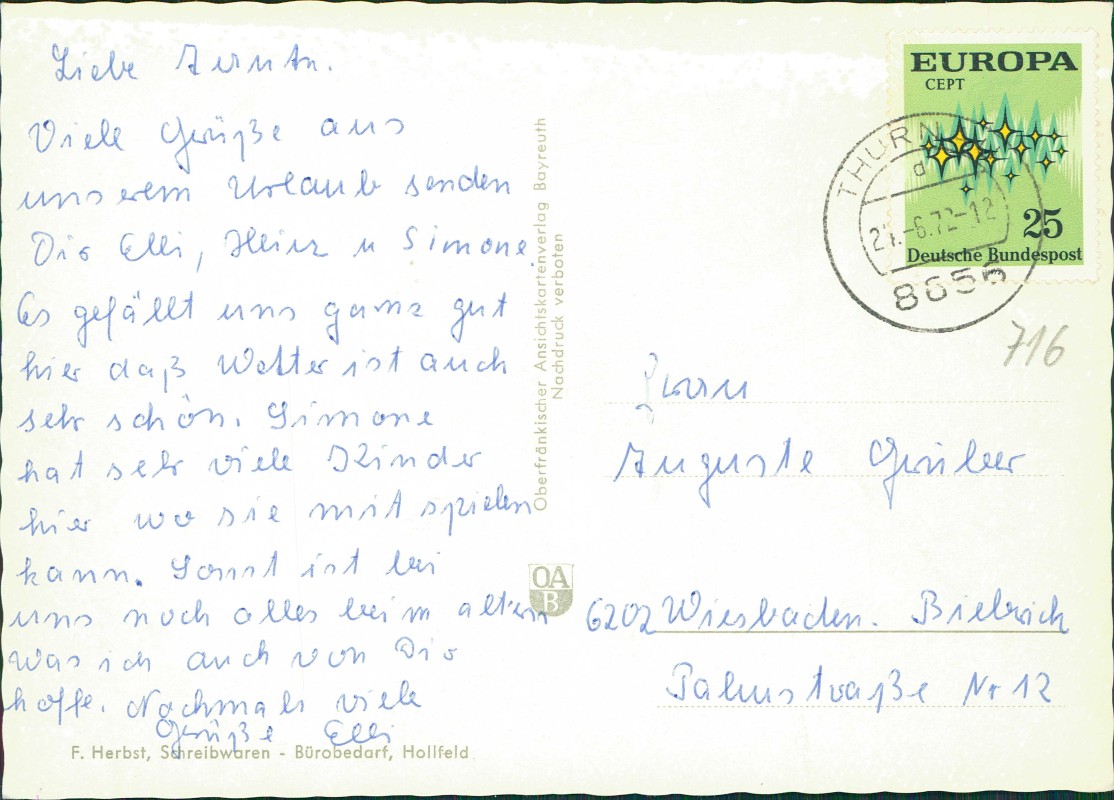 Liebe
Viele Grüße aus
unserem Urlaub senden
Dir Elli, Heinz u Simone.
Es gefällt uns ganz gut
hier daß Wetter ist auch
sehr schön. Simone
hat sehr viele Kinder
hier wo sie mit spielen
kann. Sonst ist bei
uns noch alles beim alten
was ich auch von Dir
hoffe. Nochmals viele
Grüße Elli
F. Herbst, Schreibwaren - Bürobedarf, Hollfeld
Oberfränkischer Ansichtskartenverlag Bayreuth
Nachdruck verboten
OA
B
EUROPA
CEPT
25
Deutsche Bundespost
THURN
d
-6.72-12
8656
716
Frau
Auguste Gruber
6202 Wiesbaden. Biebrich
Nr 12